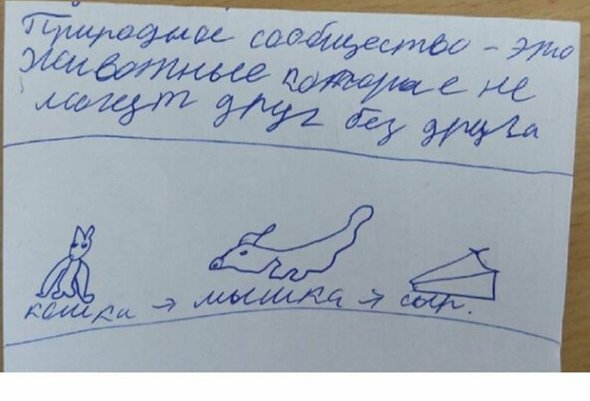 Природное сообщество – это
животные которые не
могут друг без друга
кошка → мышка → сыр.